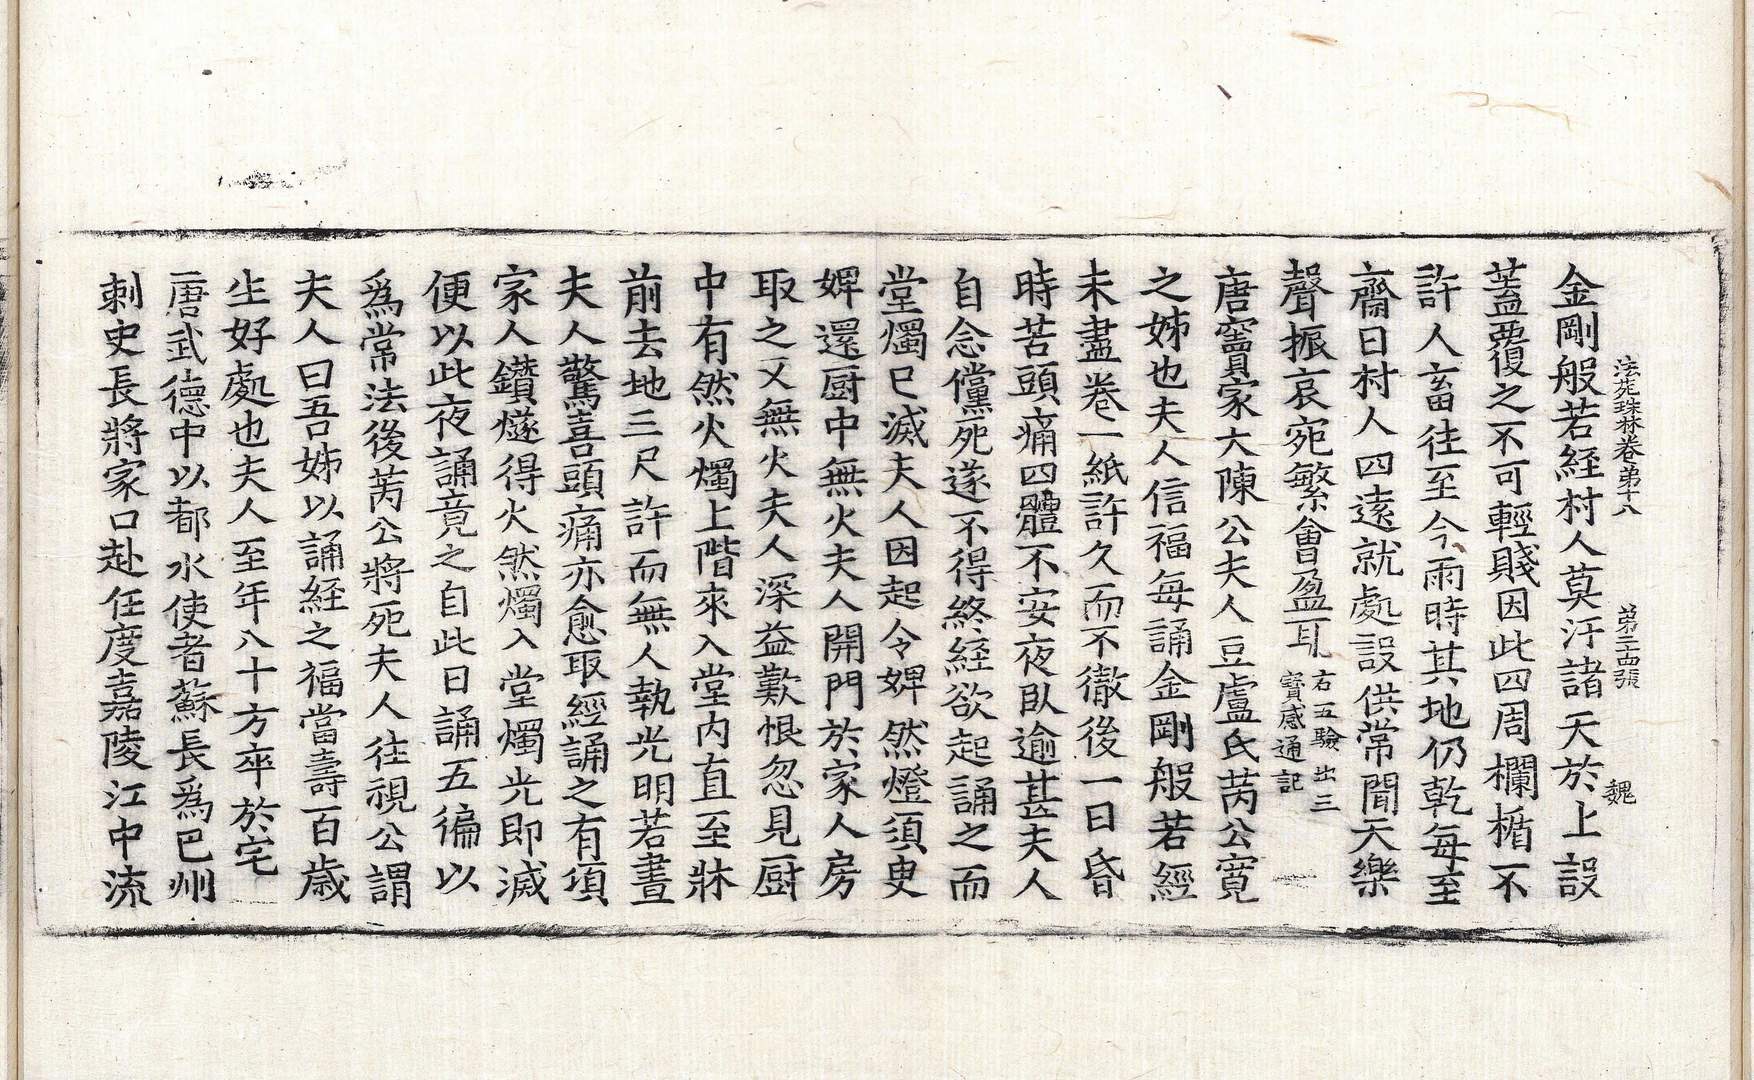 法苑珠林卷第十八 第三十四張 魏
金剛般若経村人莫汙諸天於上設
蓋覆之不可輕賤因此四周欄楯不
許人畜往至今雨時其地仍乾每至
齋日村人四遠就處設供常聞天樂
聲振哀宛繁會盈耳
右五驗出三
寶感通記
唐竇家大陳公夫人豆盧氏芮公寬
之姊也夫人信福每誦金剛般若經
未盡卷一紙許久而不徹後一日昏
時苦頭痛四體不安夜臥逾甚夫人
自念儻死遂不得終経欲起誦之而
堂燭已滅夫人因起令婢然燈須臾
婢還厨中無火夫人開門於家人房
取之又無火夫人深益歎恨忽見厨
中有然火燭上階來入堂內直至牀
前去地三尺許而無人執光明若晝
夫人驚喜頭痛亦愈取經誦之有頃
家人鑽燧得火然燭入堂燭光即滅
便以此夜誦竟之自此日誦五徧以
爲常法後芮公將死夫人往視公謂
夫人曰吾姊以誦経之福當壽百歲
生好處也夫人至年八十方卒於宅
唐武德中以都水使者蘇長爲巴州
刺史長將家口赴任度嘉陵江中流